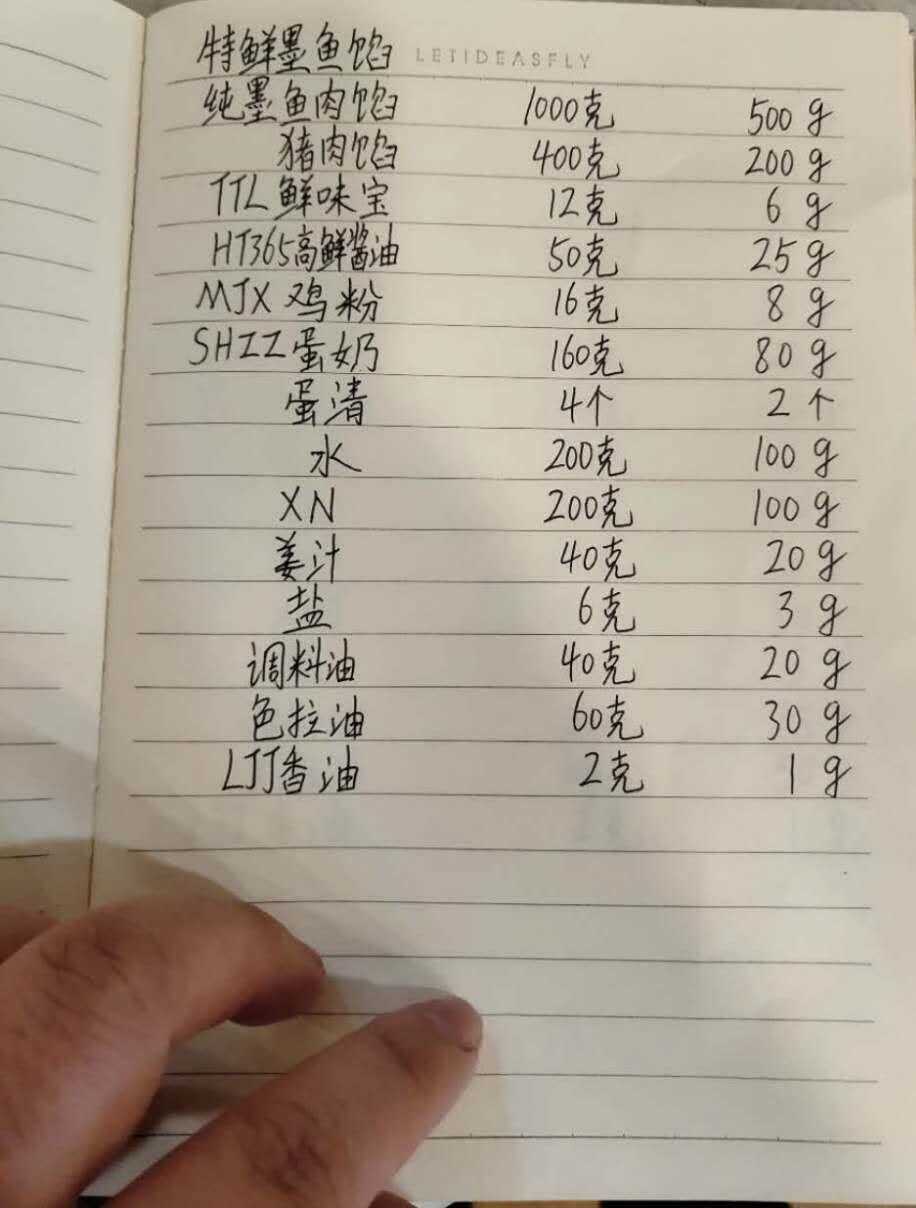 特鲜墨鱼馅 LETIDEASFLY
纯墨鱼肉馅 1000克 500g
猪肉馅 400克 200g
TTL鲜味宝 12克 6g
HT365高鲜酱油 50克 25g
MJX鸡粉 16克 8g
SHZZ蛋奶 160克 80g
蛋清 4个 2个
水 200克 100g
XN 200克 100g
姜汁 40克 20g
盐 6克 3g
调料油 40克 20g
色拉油 60克 30g
LJJ香油 2克 1g